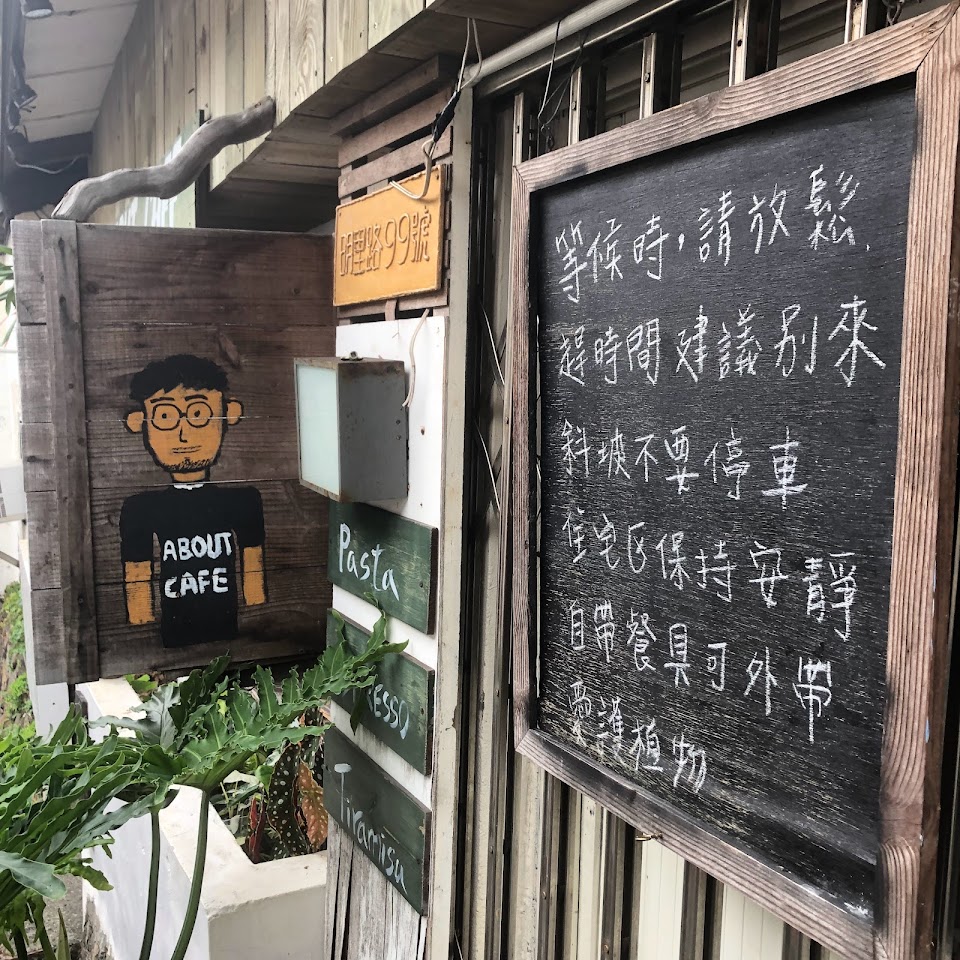 明里路99號
ABOUT
CAFE
Pasta
Tiramisu
等候時,請放鬆.
趕時間建議別來
斜坡不要停車
住宅区保持安靜
自帶餐具可外帶
愛護植物